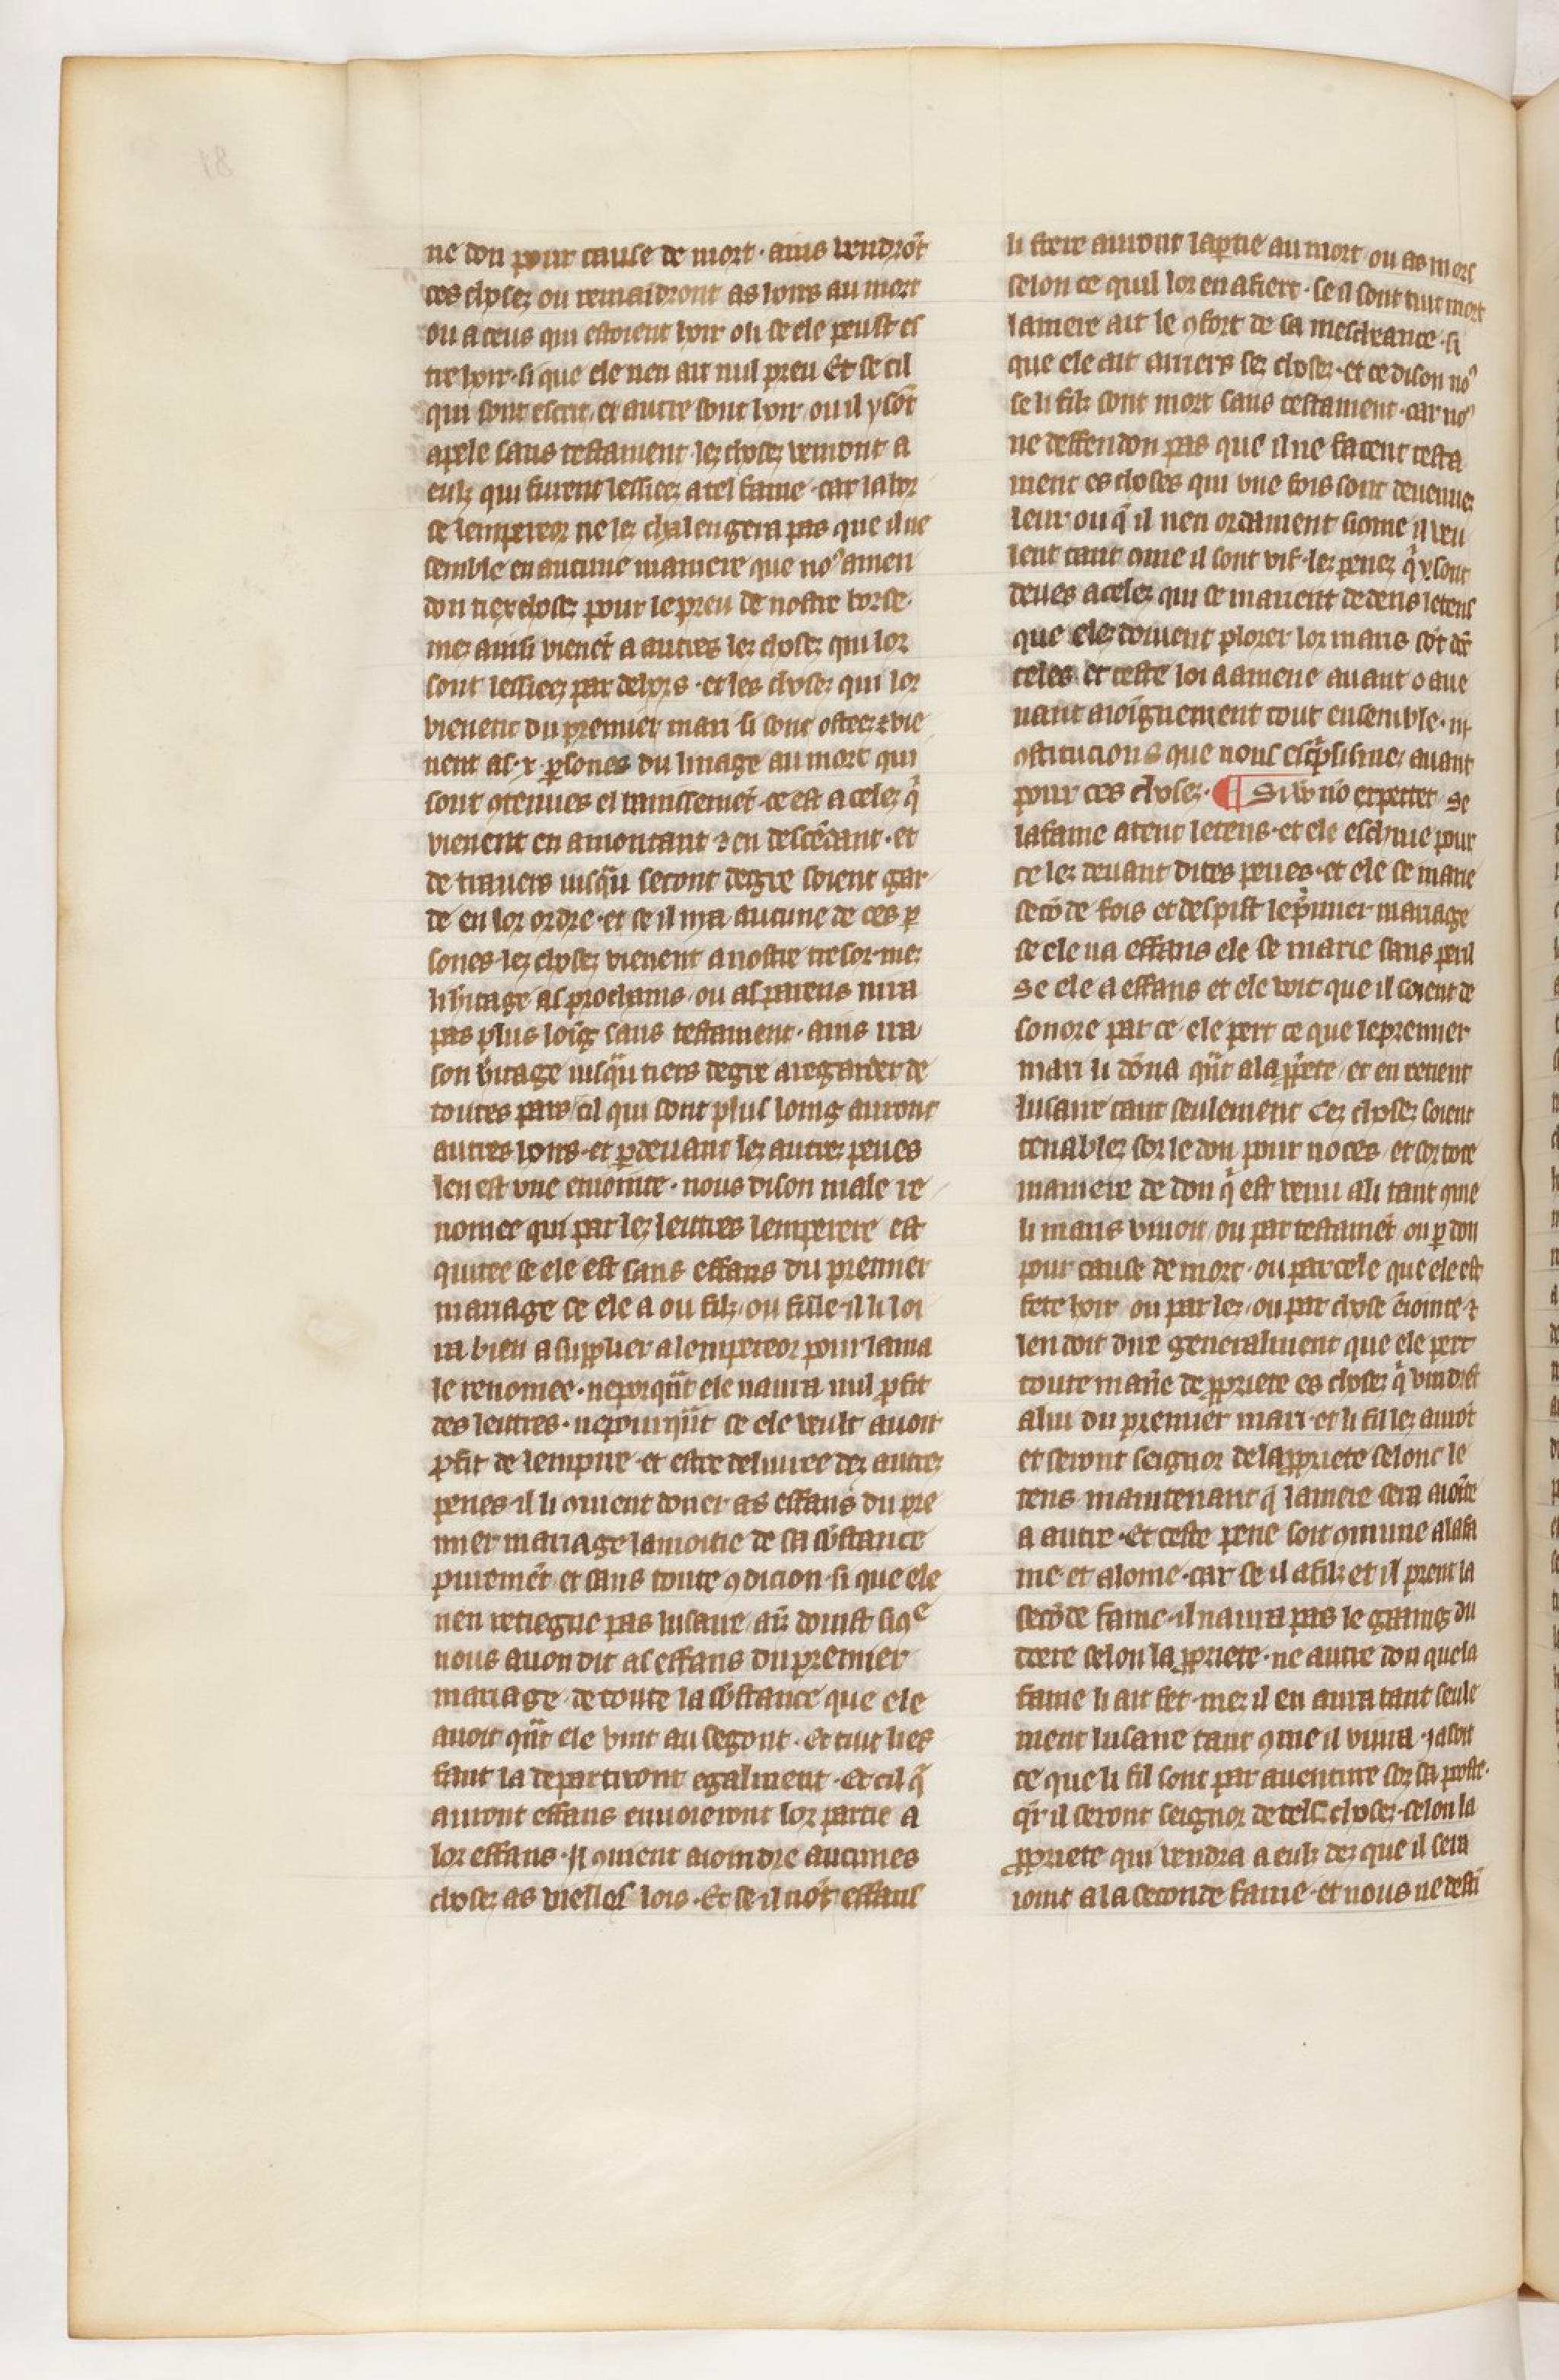 ne don pour cause de mort · ains vendrōt
ces choses ou remaidront as hoirs au mort
ou a ceus qui estoient hoir ou se ele peust es
tre hoir · si que ele nen ait nul preu Et se cil
qui sont escrit et autre sont hoir ou il y sōt
apele sans testament lez chosez vemont a
eulz qui furent lessiees a tel fame · car la bor
se lempereor ne lez chalengera pas que il ne
semble en aucune maniere que noꝰ amen
don tiex chosez pour le preu de nostre borse ·
mez ainsi vienēt a autres lez chosez qui lor
sont lessieez par dehors · et les chosez qui lor
vienent du premier mari si sont osteez ⁊ vie
nent as · x · ꝑsones du linage au mort qui
sont ꝯtenues el banissemēt · ce est a celez q̄
vienent en amontant ⁊ en descēdant · et
de travers iusqū secont degre soient gar
de en lor ordre · et se il nia aucune de ces ꝑ
sones lez chosez vienent a nostre tresor · mez
li h̄itage as prochains ou as parens nira
pas plus loīg sans testament · ains ira
son h̄itage iusqū tiers degre a regarder de
toutes pars cil qui sont plus loing auront
autres hoirs · et ꝑdevant lez autrez penes
len est une eniointe · nous dison male re
nomee qui par lez lettres lemperere est
quitee se ele est sans effans du premier
mariage se ele a ou filz ou fille il li loi
ra bien a supplier a lempereor pour la ma
le renomee · neporqn̄t ele naura nul ꝓfit
des lettres · nepourqn̄t se ele veult avoir
ꝓfit de lempire et estre delivree dez autrez
penes il li ꝯvient doner as effans du pre
mier mariage la moitie de sa sb̄stance
puremēt et sans toute ꝯdicion · si que ele
nen retiegne pas lusaire
nous avon dit as effans du premier
mariage de toute la sb̄stance que ele
avoit qn̄t ele vint au segont · Et tuit li ef
fant la departiront egalment · Et cil q̄
auront effans envoieront lor partie a
lor effans · Il ꝯvient aioindre aucunes
chosez as viellos lois · Et se il nōt effans
li frere auront la ꝑtie au mort ou as mors
selon ce quil lor en afiert · se il sont tuit mort
la mere ait le ꝯfort de sa mescheance · si
que ele ait arriers sez chosez · et ce dison noꝰ
se li filz sont mort sans testament · car noꝰ
ne deffendon pas que il ne facent testa
ment es choses qui une fois sont devenuez
leur ou q̄ il nen ordainent ꝯme il veu
lent tant ꝯme il sont vif · lez penez q̄ y sont
deves a celez qui se marient dedens le tens
que elez doivent plorer lor maris sōt
celes et ceste loi a amene avant
nant aioīgnement tout ensemble ·
ꝯstitucions que nous escpsismez avant
pour ces chosez · ¶ Si v̄o nō expectet Se
la fame atent le tens · et ele eschive pour
ce lez devant dites penes · et ele se marie
secōde fois et despist le p̄mier mariage
se ele na effans ele se marie sans peril
Se ele a effans et ele voit que il soient de
sonore par ce ele pert ce que le premier
mari li dōna qn̄t a la ꝓpriete et en retient
lusaire tant seulement Cez chosez soient
tenablez sor le don pour noces et sor tote
maniere de don q̄ est venu a li tant ꝯme
li maris vivoit ou par testamēt ou ꝑ don
pour cause de mort · ou par cele que ele est
fete hoir ou par lez ou par chose ēiointe ⁊
len doit dire generalment que ele pert
toute manie de ꝓpriete es chosez q̄ vindrēt
a lui du premier mari · et li fil lez aurōt
et seront seignor de la ꝓpriete selonc le
tens maintenant q̄ la mere sera aiōtte
a autre · Et ceste pene soit ꝯmune a la fa
me et a lome · car se il a filz et il prent la
secōde fame il naura pas le gaaing du
doere selon la ꝓpriete · ne autre don que la
fame li ait fet · mez il en aura tant seule
ment lusaire tant ꝯme il vivra · ia soit
ce que li fil sont par aventure soz sa poste ·
q̄r il seront seignor de telz chosez · selon la
ꝓpriete qui vendra a eulz dez que il sera
ioint a la seconde fame · et nous ne desti